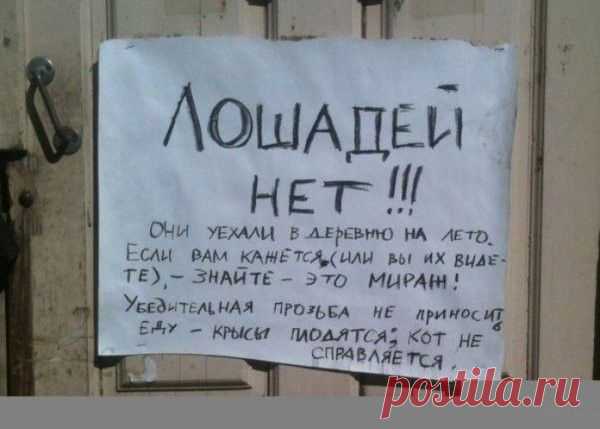 ЛОШАДЕЙ
НЕТ!!!
ОНИ УЕХАЛИ В ДЕРЕВНЮ НА ЛЕТО.
ЕСЛИ ВАМ КАЖЕТСЯ, (ИЛИ ВЫ ИХ ВИДЕ-
ТЕ), – ЗНАЙТЕ – ЭТО МИРАЖ!
УБЕДИТЕЛЬНАЯ ПРОЗЬБА НЕ ПРИНОСИТЬ
ЕДУ – КРЫСЫ ПЛОДЯТСЯ; КОТ НЕ
СПРАВЛЯЕТСЯ.
postila.ru